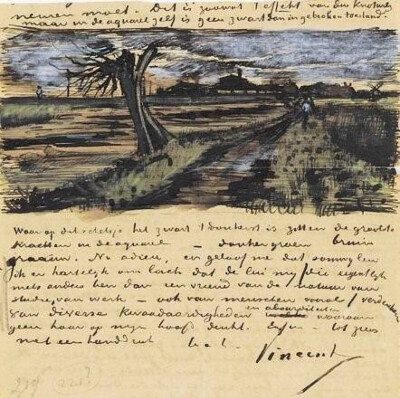 nemen moet. Dit is zoowat 't effekt van den knotwilg
maar in de aquarel zelf is geen zwart dan in gebroken toestand.
Waar op dit schetsje het zwart 't donkerst is zitten de grootste
krachten in de aquarel – donkergroen bruin
graauw. Nu adieu, en geloof me dat
ik er hartelijk om lach dat de lui mij (die eigenlijk
niets anders ben dan een vriend van de natuur van
studie, van werk – ook van menschen vooral) verdenken
van diverse kwaadaardigheden en absurditeiten waaraan
geen haar op mijn hoofd denkt. Enfin – tot ziens
met een handdruk t. à t.
Vincent